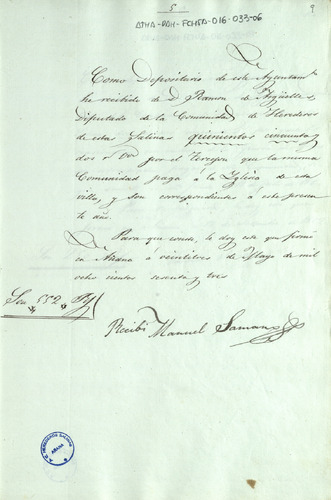 5
9
ATHA-DAH-FCHSA-016-033-06
Como Depositario de este Ayuntamto
he recibido de D. Ramon de Argüelles,
Diputado de la Comunidad de Herederos
de estas Salinas quinientos cincuenta y
dos rs. von por el tercejon que la misma
Comunidad paga á la Iglesia de esta
villa, y son correspondientes á este presen
te año.
Para que conste, le doy este que firmo
en Añana á veintitres de Mayo de mil
ocho cientos sesenta y tres
Son 552 Rs
Recibi Manuel Samano